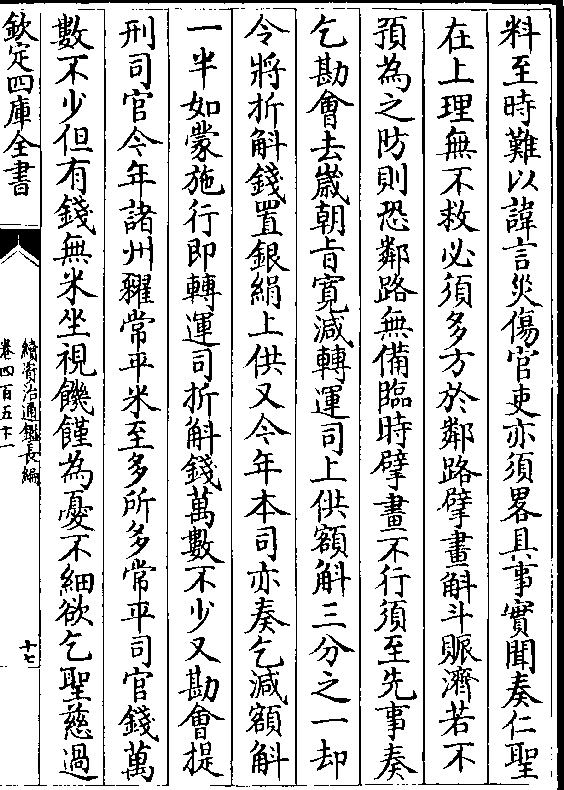 料至時難以諱言災傷官吏亦須畧具事實聞奏仁聖
在上理無不救必須多方於鄰路擘畫斛斗賑濟若不
預為之防則恐鄰路無備臨時擘畫不行須至先事奏
乞勘會去嵗朝㫖寛減轉運司上供額斛三分之一却
令將折斛錢置銀絹上供又今年本司亦奏乞減額斛
一半如蒙施行即轉運司折斛錢萬數不少又勘會提
刑司官今年諸州糴常平米至多所多常平司官錢萬
數不少但有錢無米坐視饑饉為憂不細欲乞聖慈過
欽定四庫全書
續資治通鑑長編
卷四百五十一
十七